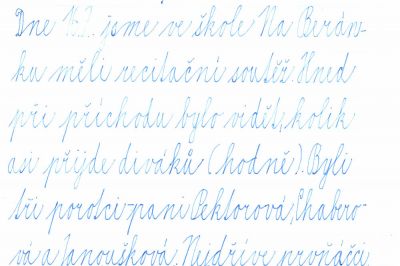 Dne 16.2. jsme ve škole Na Berán-
ku měli recitační soutěž. Hned
při příchodu bylo vidět, kolik
asi přijde diváků (hodně). Byli
tři porotci-paní Pektorová, Chabero-
vá a Janoušková. Nejdříve prvňáčci